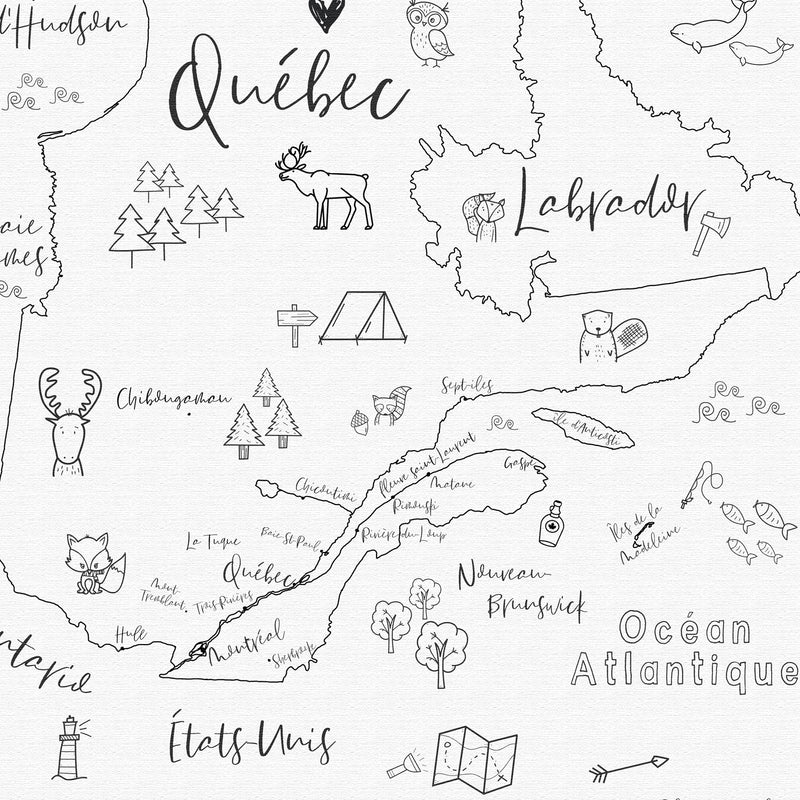 d'Hudson
Québec
Labrador
Sept-iles
Chibougamau
île d'Anticosti
fleuve saint-Laurent
Gaspé
Matane
Chicoutimi
Rimouski
Îles de la
Madeleine
La Tuque
Baie-St-Paul
Rivière-du-Loup
Québec
Nouveau-
Brunswick
Mont-
Tremblant
Trois-Rivières
Océan
Atlantique
Hull
Montréal
Sherbrooke
ntario
États-Unis